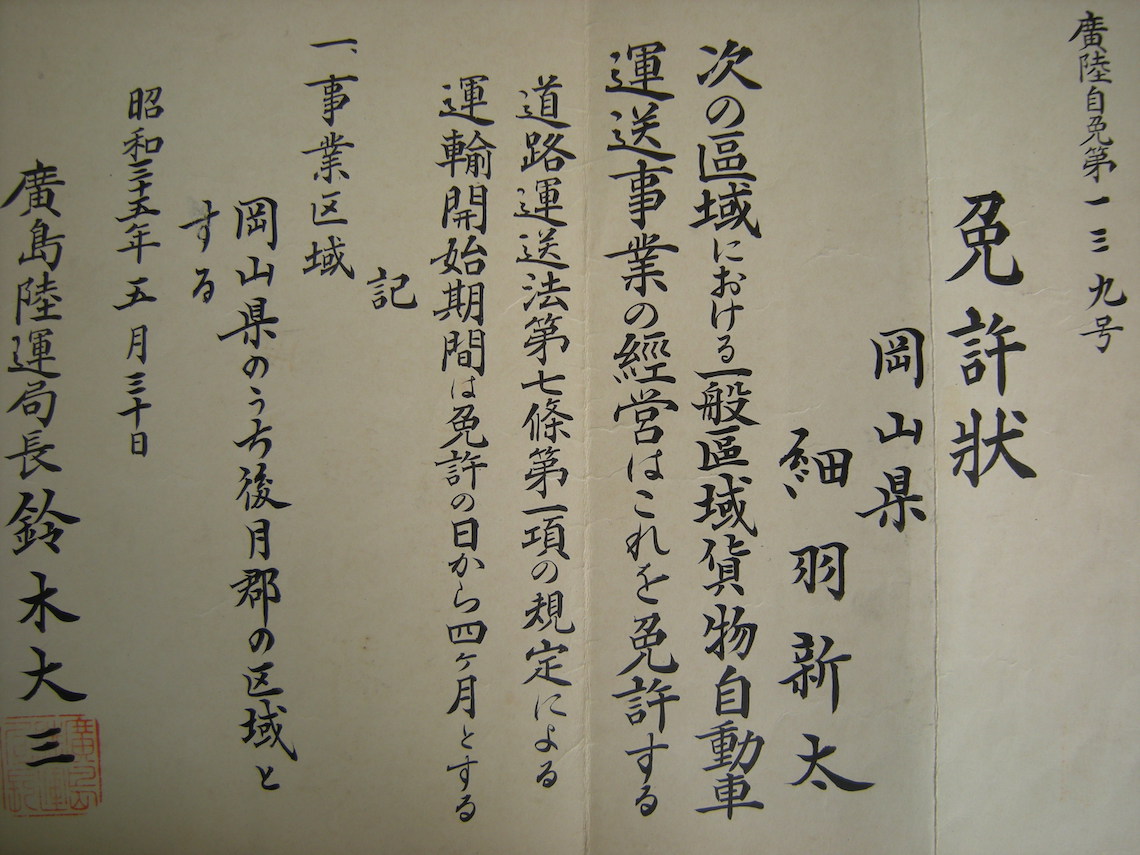 廣陸自免第一三九号
免許状
岡山県
細羽新太
次の區域における一般區域貨物自動車
運送事業の經営はこれを免許する
道路運送法第七條第一項の規定による
運輸開始期間は免許の日から四ヶ月とする
記
一、事業区域
岡山県のうち後月郡の区域と
する
昭和二十五年五月三十日
廣島陸運局長鈴木大三